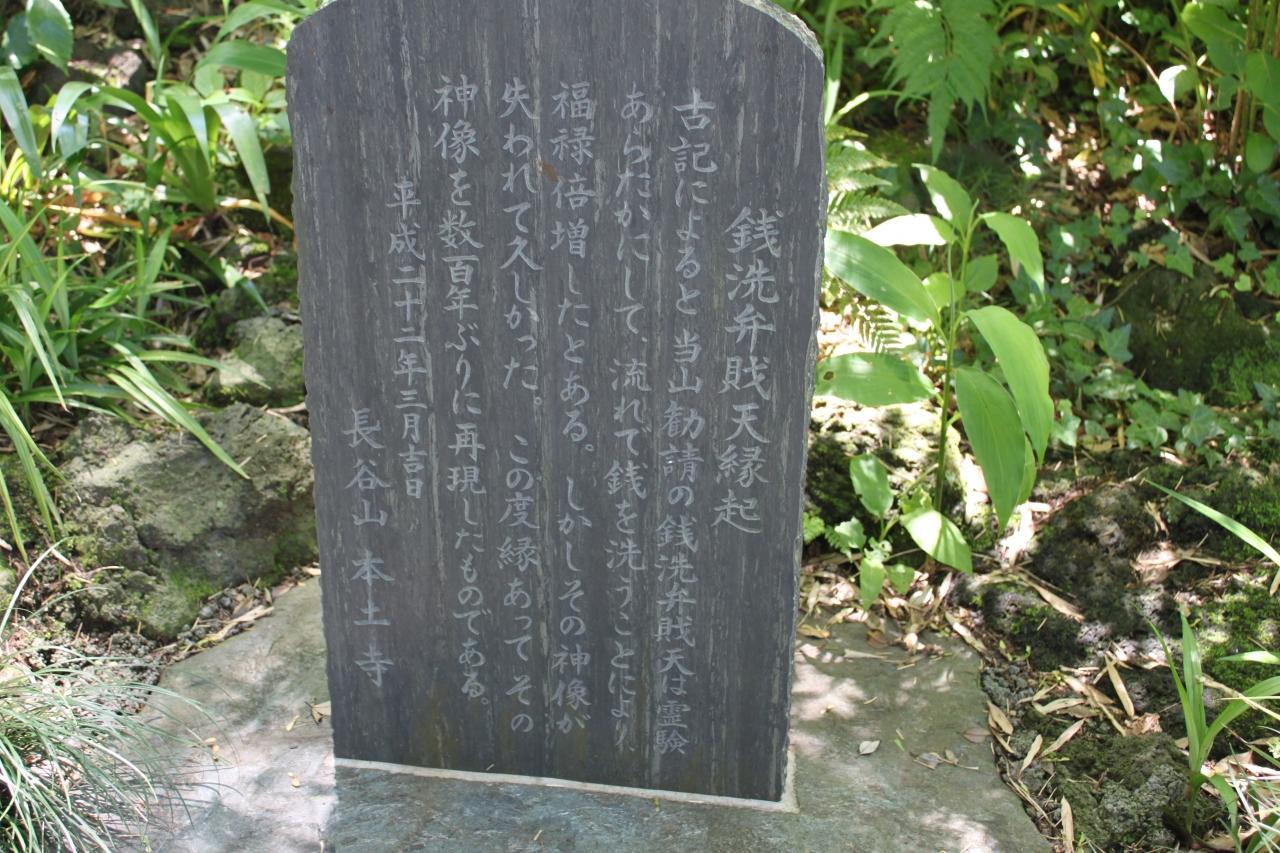 銭洗弁財天縁起
古記によると当山勧請の銭洗弁財天は霊験
あらたかにして、流れで銭を洗うことにより
福禄倍増したとある。しかしその神像が
失われて久しかった。この度縁あってその
神像を数百年ぶりに再現したものである。
平成二十二年三月吉日
長谷山本土寺